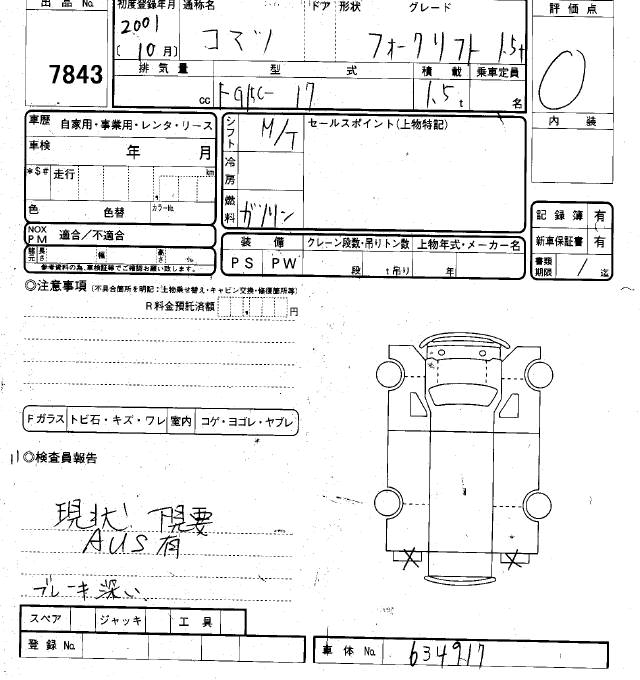 出品No. 初度登録年月 通称名 ドア 形状 グレード 評価点
2001
(10月) コマツ フォークリフト 1.5t 0
7843 排気量 型式 積載 乗車定員
cc 17 1.5t 名
車歴 自家用・事業用・レンタ・リース シフト M/T セールスポイント(上物特記) 内装
車検 年 月
*$# 走行 km 冷房
色 色替 カラーNo. 燃料 ガソリン
NOX PM 適合/不適合 装備 クレーン段数・吊りトン数 上物年式・メーカー名 記録簿 有
長さ 幅 高さ PS PW 段 t吊り 年 新車保証書 有
参考資料の為、車検証等でご確認お願い致します。 書類期限 / 迄
◎注意事項 (不具合箇所を明記:上物乗せ替え・キャビン交換・修復箇所等)
R料金預託済額 円
Fガラス トビ石・キズ・ワレ 室内 コゲ・ヨゴレ・ヤブレ
◎検査員報告
現状 下見要
AUS有
ブレーキ深い
X X
スペア ジャッキ 工具
登録No. 車体No. 634917